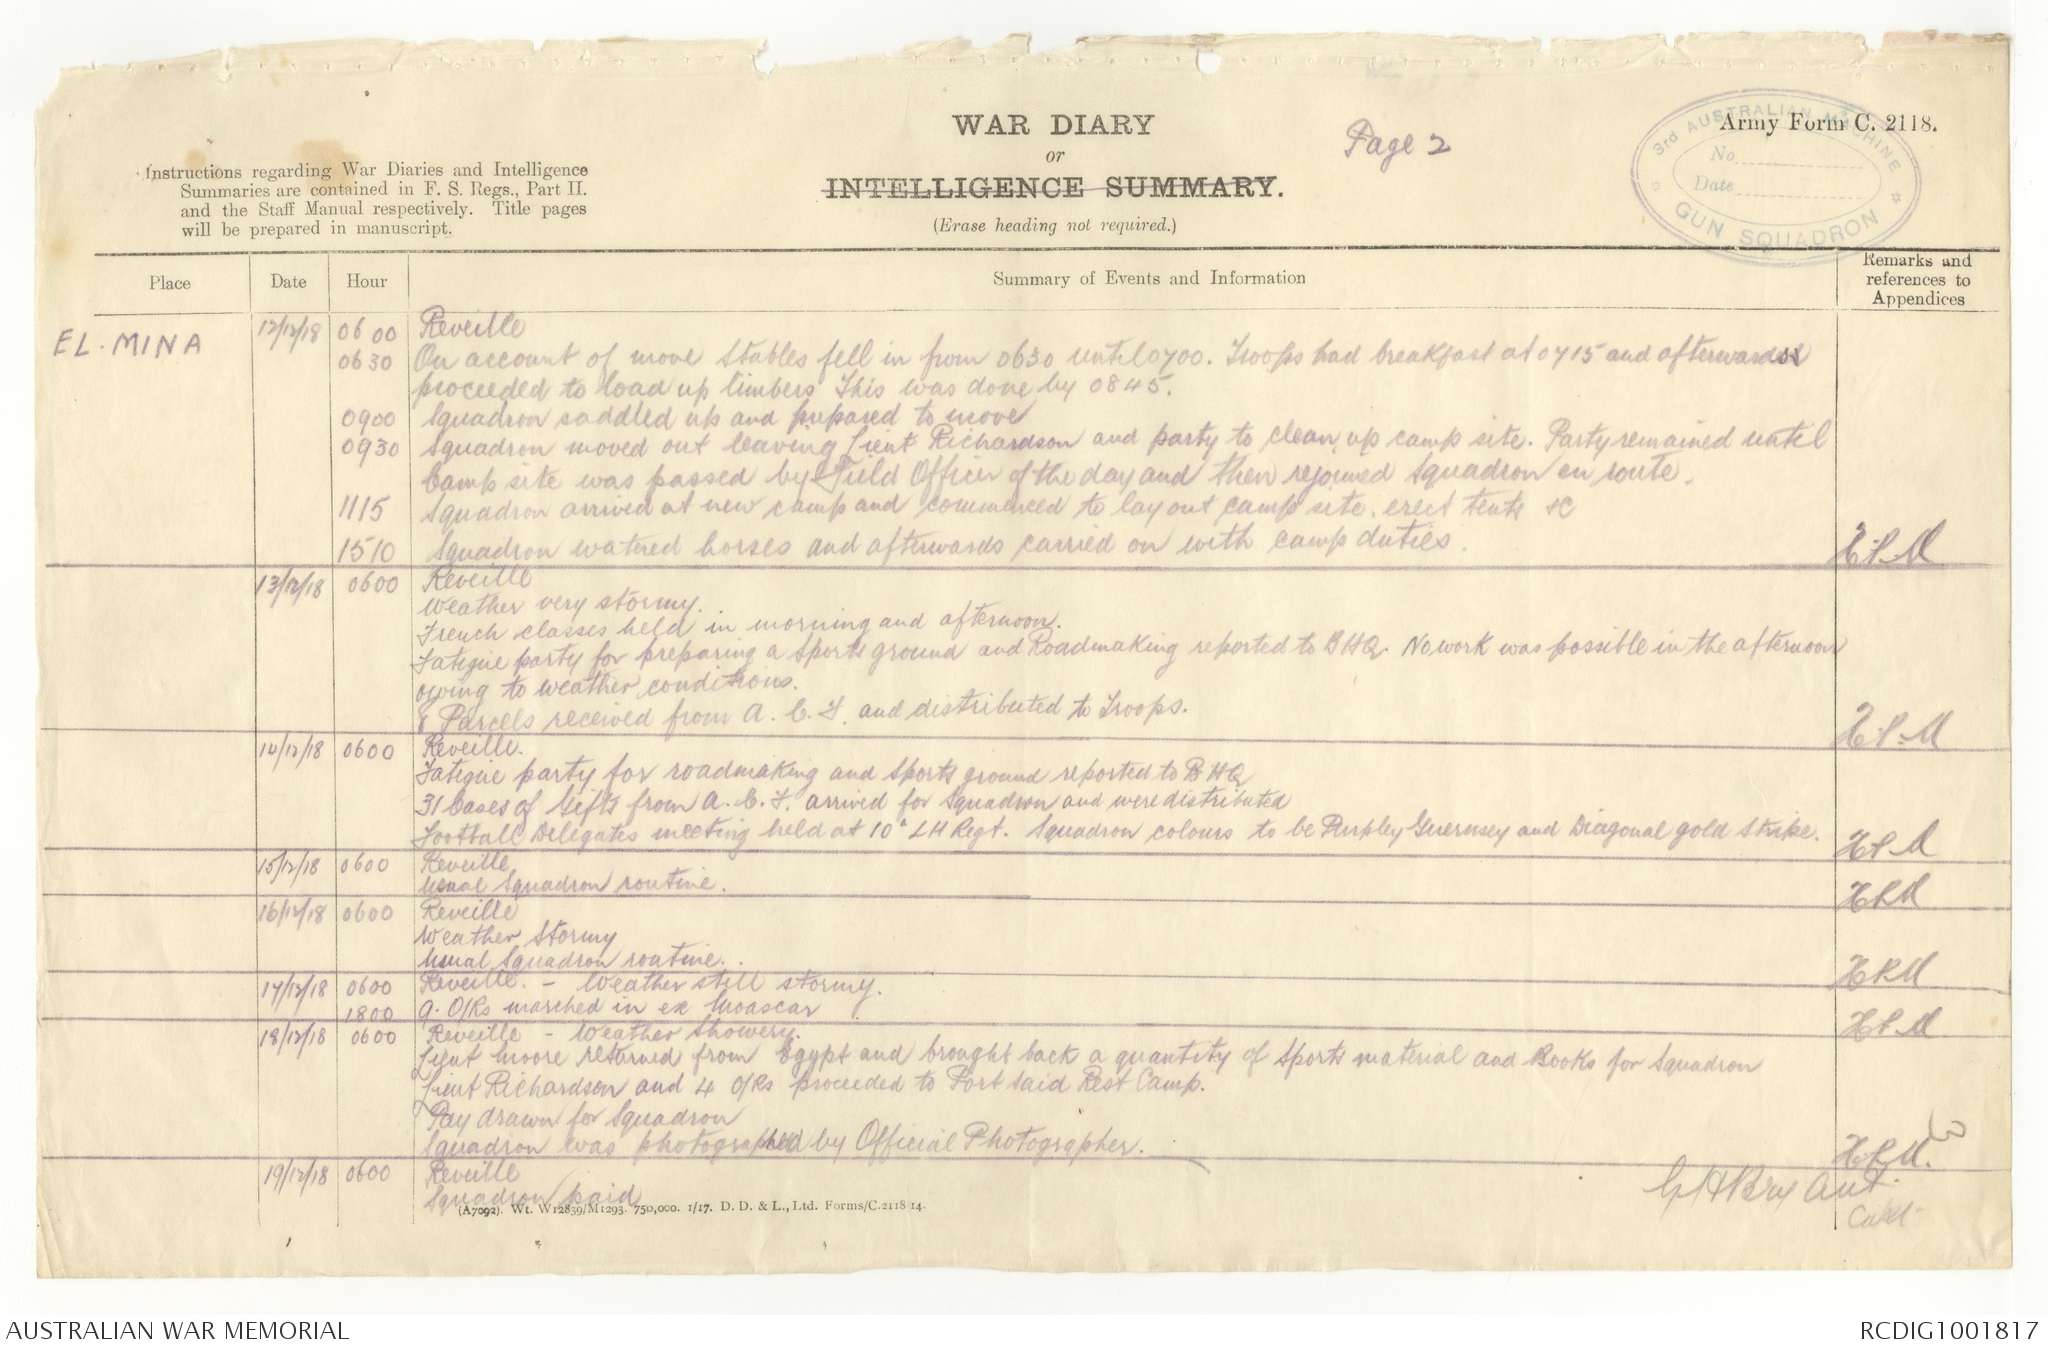 WAR DIARY
or
INTELLIGENCE SUMMARY.
(Erase heading not required.)
Page 2
Army Form C. 2118.
3rd AUSTRALIAN MACHINE
No.
Date
GUN SQUADRON
Instructions regarding War Diaries and Intelligence
Summaries are contained in F. S. Regs., Part II.
and the Staff Manual respectively. Title pages
will be prepared in manuscript.
Place Date Hour Summary of Events and Information Remarks and
references to
Appendices
EL. MINA 12/12/18 0600 Reveille
0630 On account of move Stables fell in from 0630 until 0700. Troops had breakfast at 0715 and afterwards
proceeded to load up limbers This was done by 0845.
0900 Squadron saddled up and prepared to move
0930 Squadron moved out leaving Lieut Richardson and party to clean up camp site. Party remained until
Camp site was passed by Field Officer of the day and then rejoined Squadron en route.
1115 Squadron arrived at new camp and commenced to lay out camp site. erect tents &C
1510 Squadron watered horses and afterwards carried on with camp duties.
13/12/18 0600 Reveille
Weather very stormy.
French classes held in morning and afternoon.
Fatigue party for preparing a Sports ground and Roadmaking reported to BHQ. No work was possible in the afternoon
owing to weather conditions.
8 Parcels received from A. C. F. and distributed to Troops.
14/12/18 0600 Reveille.
Fatigue party for roadmaking and Sports ground reported to BHQ
31 Cases of Gifts from A. C. F. arrived for Squadron and were distributed
Football Delegates meeting held at 10" LH Regt. Squadron colours to be Purpley Guernsey and Diagonal gold Stripe.
15/12/18 0600 Reveille
Usual Squadron routine.
16/12/18 0600 Reveille
Weather Stormy
Usual Squadron routine.
17/12/18 0600 Reveille. - Weather still stormy.
1800 9. O/Rs marched in ex Moascar
18/12/18 0600 Reveille - Weather Showery.
Lieut Moore returned from Egypt and brought back a quantity of Sports material and Books for Squadron
Lieut Richardson and 4 O/Rs proceeded to Port Said Rest Camp.
Pay drawn for Squadron
Squadron was photographed by Official Photographer.
19/12/18 0600 Reveille
Squadron paid
(A7092). Wt. W12839/M1293. 750,000. 1/17. D. D. & L., Ltd. Forms/C.2118/14.
AUSTRALIAN WAR MEMORIAL
RCDIG1001817